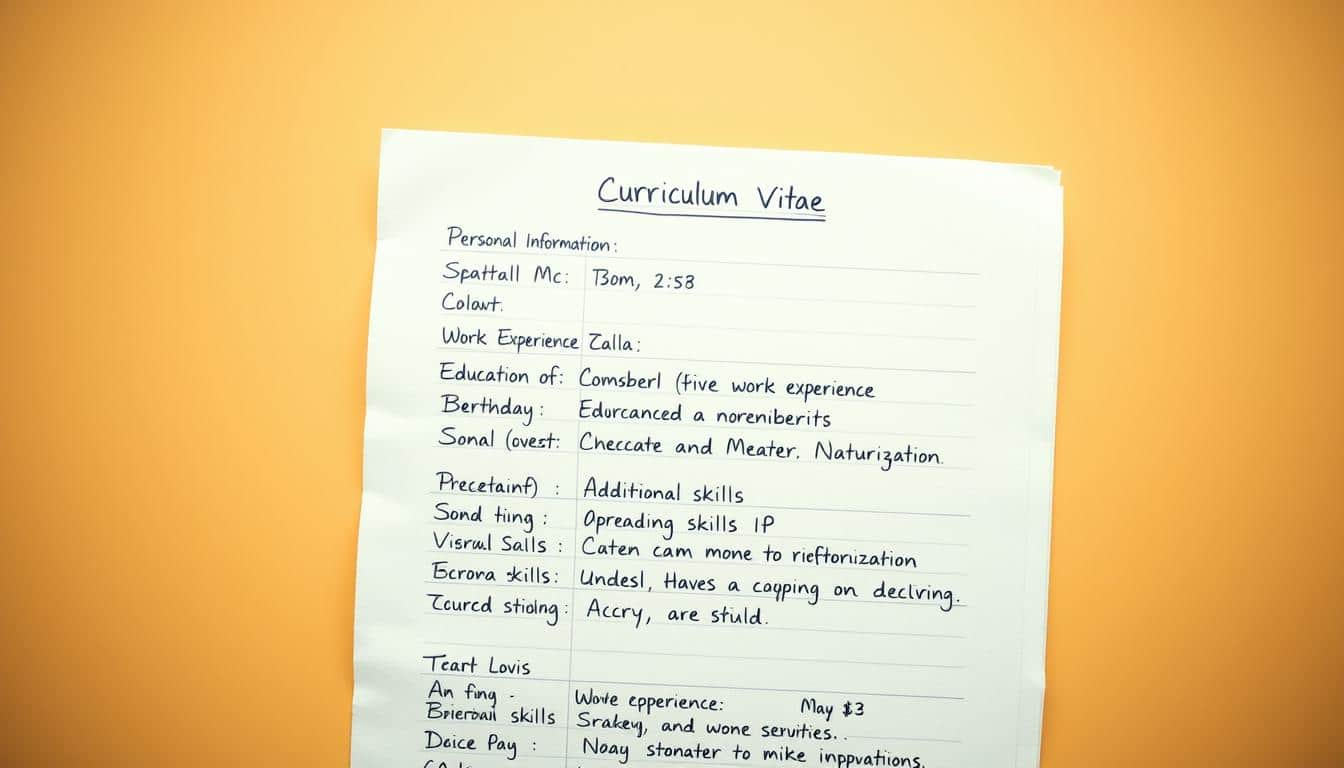 Curriculum Vitae
Personal Information:
Spattall Mc: Bom, 2:58
Colavt.
Work Experience Zalla:
Education of: Comsberl (five work experience
Berthday: Edorcanced a noreniberits
Sonal (ovest: Checcate and Meater. Naturization.
Precetainf) : Additional skills
Sond ting : Opreading skills IP
Visrual Salls : Caten cam mone to
Ecrora skills: Undesl, Haves a copping on declving.
Tcurcd stiolng: Accry, are stuld.
Teart Lovis
An fing -
Worte epperience: May $3
skills Srakeuy, and wone servities..
Dcice Pay : Noay stonater to mike inppvations.